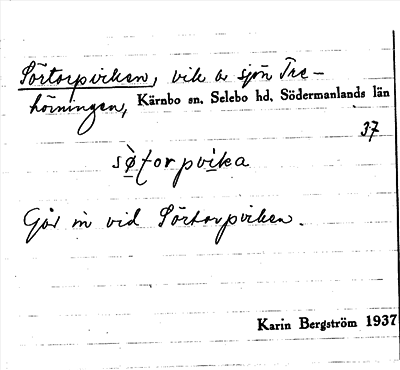 Sörtorpviken, vik av sjön Tre-
hörningen, Kärnbo sn, Selebo hd, Södermanlands län
37
sø̀torpvika
Går in vid Sörtorpviken.
Karin Bergström 1937